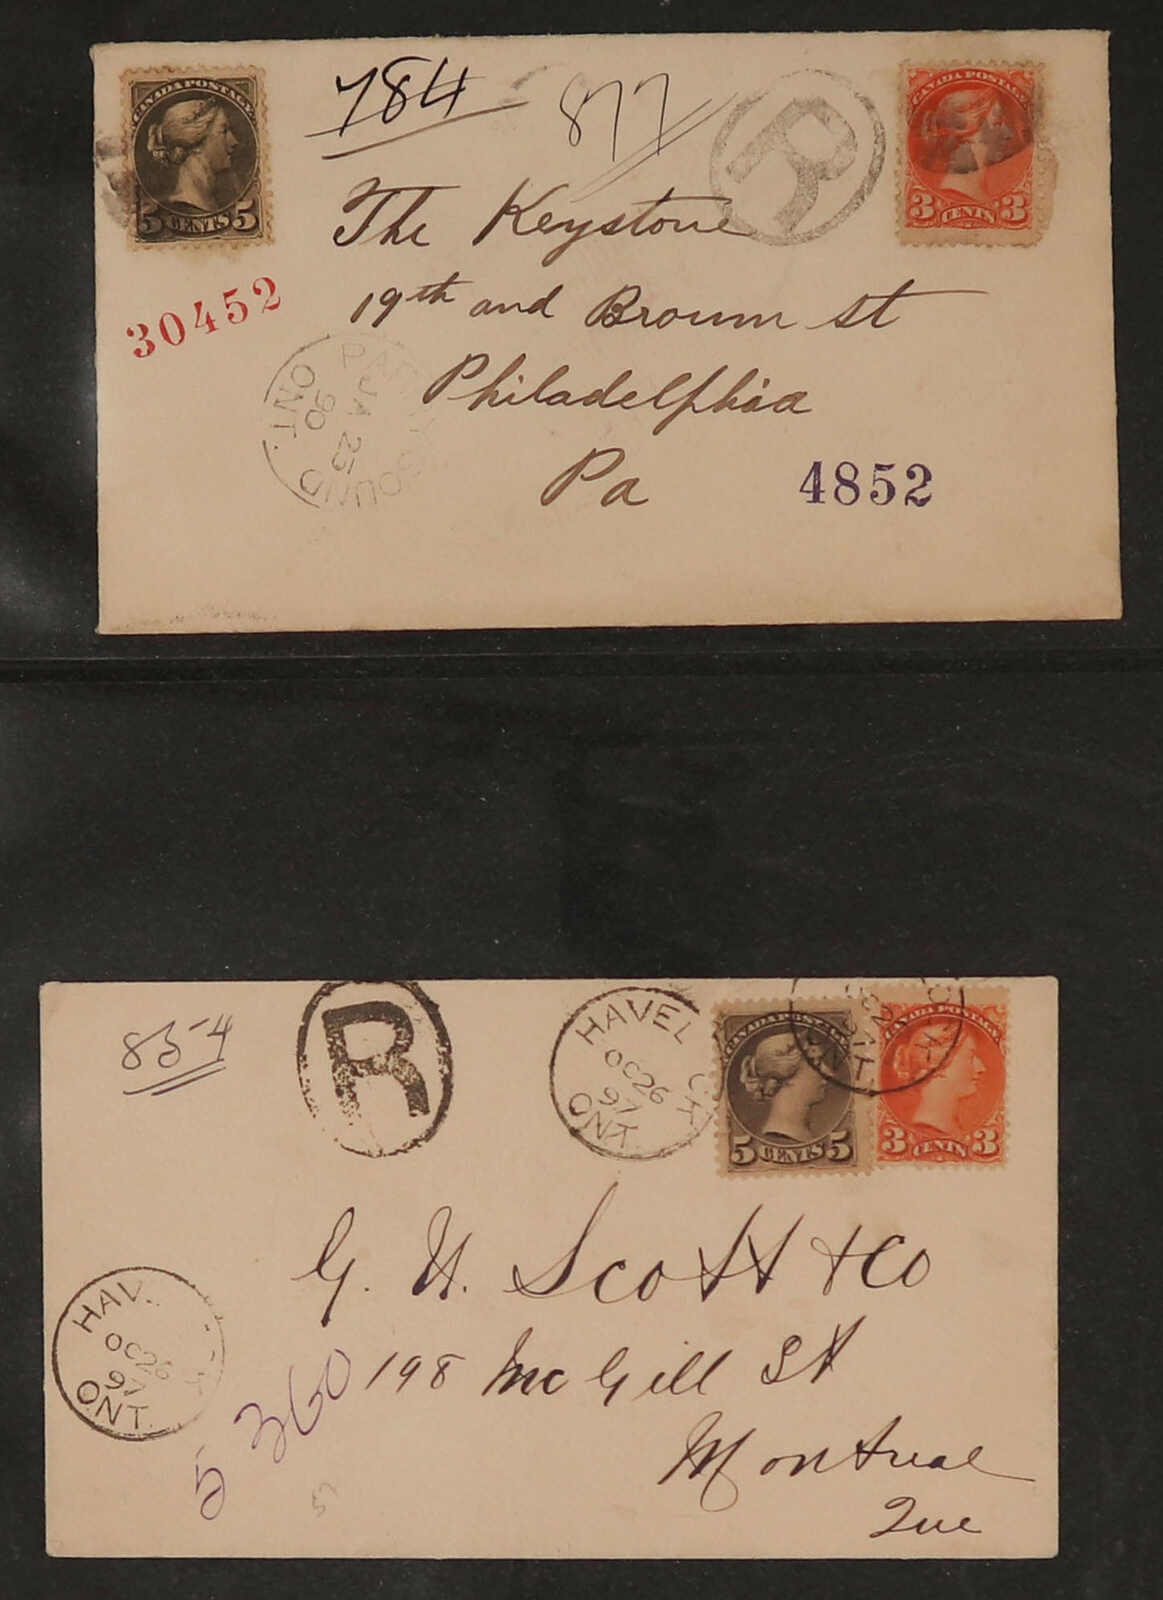 CANADA POSTAGE
5 CENTS 5
784
877
R
CANADA POSTAGE
3 CENTS 3
The Keystone
19th and Broum St
Philadelphia
Pa
30452
4852
PARRY SOUND
JA 25
90
ONT.
854
R
HAVELOCK
OC 26
97
ONT.
CANADA POSTAGE
5 CENTS 5
CANADA POSTAGE
3 CENTS 3
ONT.
G. U. Scott & Co
198 McGill St
Montreal
Que
HAV
CK
OC 26
97
ONT.
5 360